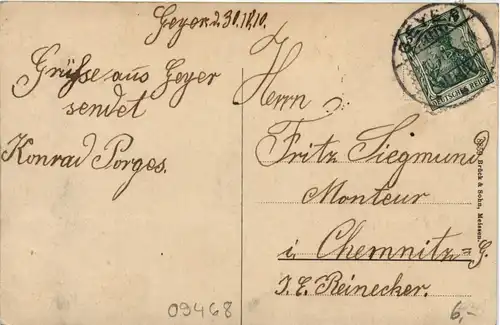 Geyer d. 30.11.10.
Grüsse aus Geyer
sendet
Konrad Porges.
Herrn
Fritz Siegmund
Monteur
i. Chemnitz=G.
J. E. Reinecker.
GEYER
DEUTSCHES REICH
Brück & Sohn, Meissen
09468
6,-